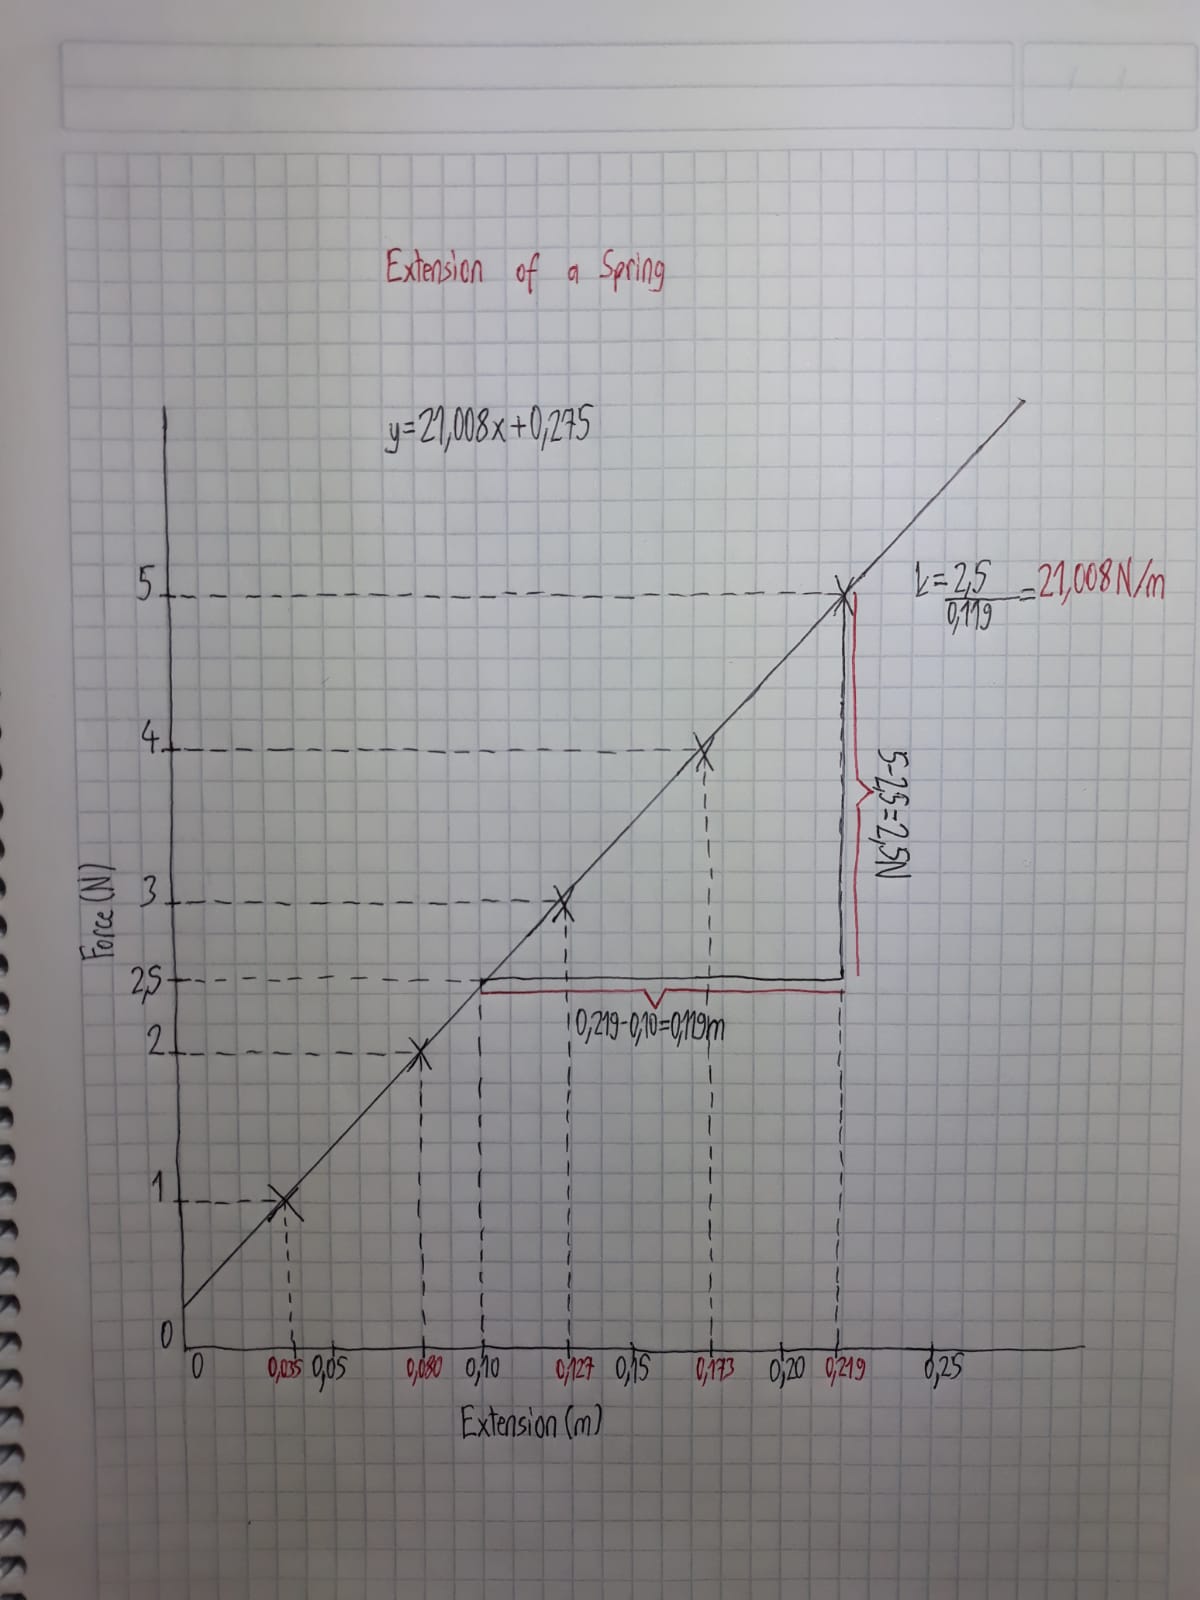 Extension of a Spring
y=21,008x+0,275
5
k=2,5
0,119
=21,008N/m
4
5-2,5=2,5N
3
Force (N)
2,5
0,219-0,10=0,119m
2
1
0
0 0,035 0,05 0,080 0,10 0,127 0,15 0,173 0,20 0,219 0,25
Extension (m)